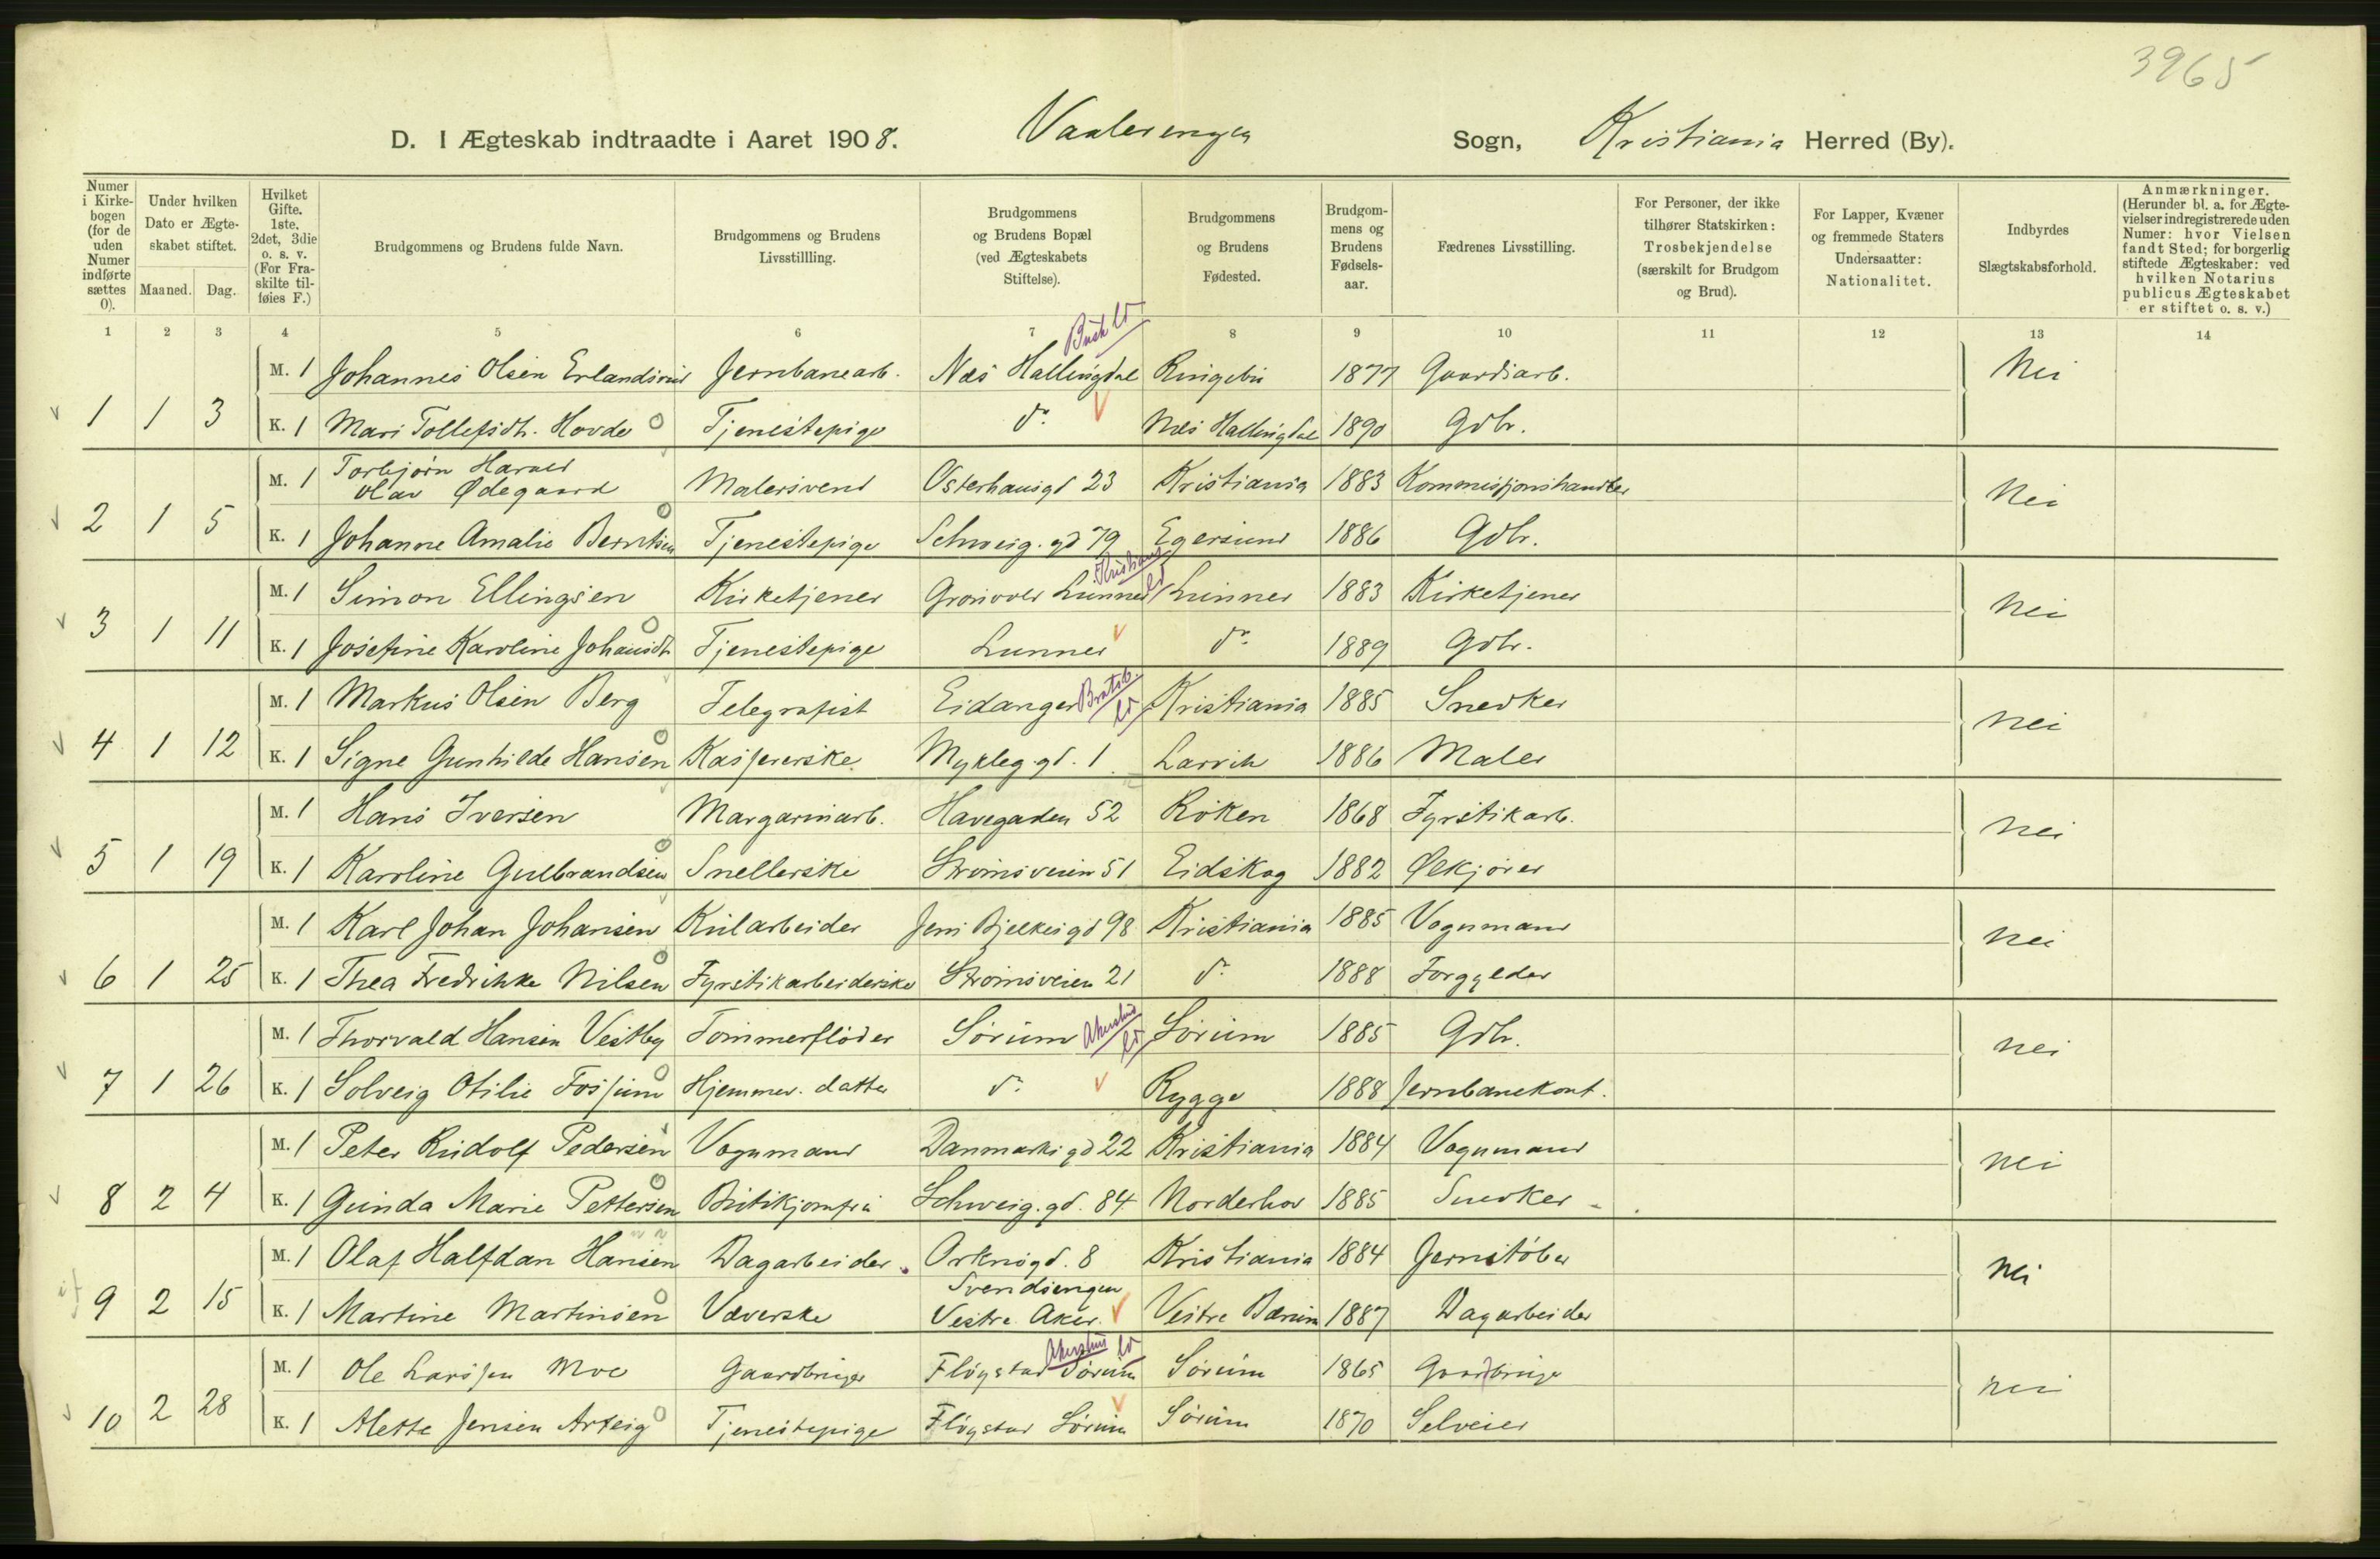 3965
D. I Ægteskab indtraadte i Aaret 1908. Vaalerengen Sogn, Kristiania Herred (By).
Numer i Kirkebogen (for de uden Numer indførte sættes 0).
Under hvilken Dato er Ægteskabet stiftet.
Maaned. Dag.
Hvilket Gifte. 1ste, 2det, 3die o. s. v. (For Fraskilte tilføies F.)
Brudgommens og Brudens fulde Navn.
Brudgommens og Brudens Livsstillling.
Brudgommens og Brudens Bopæl (ved Ægteskabets Stiftelse).
Brudgommens og Brudens Fødested.
Brudgommens og Brudens Fødselsaar.
Fædrenes Livsstilling.
For Personer, der ikke tilhører Statskirken: Trosbekjendelse (særskilt for Brudgom og Brud).
For Lapper, Kvæner og fremmede Staters Undersaatter: Nationalitet.
Indbyrdes Slægtskabsforhold.
Anmærkninger. (Herunder bl. a. for Ægtevielser indregistrerede uden Numer: hvor Vielsen fandt Sted; for borgerlig stiftede Ægteskaber: ved hvilken Notarius publicus Ægteskabet er stiftet o. s. v.)
1 2 3 4 5 6 7 8 9 10 11 12 13 14
M. 1 Johannes Olsen Erlandsrud Jernbanearb. Næs Hallingdal Ringebu 1877 Gaardsarb. Nei
1 1 3 K. 1 Mari Tollefsdt. Hovde Tjenestepige do. Næs Hallingdal 1890 Gdbr.
M. 1 Torbjørn Harald
Olav Ødegaard Malersvend Osterhausgd 23 Kristiania 1883 Kommissjonshandler Nei
2 1 5 K. 1 Johanne Amalie Berntsen Tjenestepige Schweig. gd 79 Egersund 1886 Gdbr.
Kristians
M. 1 Simon Ellingsen Kirketjener Lunner Lunner 1883 Kirketjener Nei
3 1 11 K. 1 Josefine Karoline Johansdt. Tjenestepige Lunner do. 1889 Gdbr.
M. 1 Markus Olsen Berg Telegrafist Eidanger Bratsb. Kristiania 1885 Snedker Nei
4 1 12 K. 1 Signe Gunhilde Hansen Kasjererske Mykleg. gd. 1 Larvik 1886 Maler
M. 1 Hans Iversen Margarinarb. Havegaden 52 Röken 1868 Fyrstikarb. Nei
5 1 19 K. 1 Karoline Gulbrandsen Snellerske Strömsveien 51 Eidskog 1882 Ølkjörer
M. 1 Karl Johan Johansen Kularbeider Jens Bjelkesgd 98 Kristiania 1885 Vognmand Nei
6 1 25 K. 1 Thea Fredrikke Nilsen Fyrstikarbeiderske Strömsveien 21 do. 1888 Forgylder
M. 1 Thorvald Hansen Vestby Tömmerflöder Sörum Akershus Sörum 1885 Gdbr. Nei
7 1 26 K. 1 Solveig Otilie Fossum Hjemmev. datter do. Rygge 1888 Jernbanekont.
M. 1 Peter Rudolf Pedersen Vognmand Danmarks gd 22 Kristiania 1884 Vognmand Nei
8 2 4 K. 1 Gunda Marie Pettersen Butikjomfru Schweig. gd. 84 Norderhov 1885 Snedker
M. 1 Olaf Halfdan Hansen Dagarbeider Orknögd. 8 Kristiania 1884 Jernstöber Nei
Svendsengen
9 2 15 K. 1 Martine Martinsen Væverske Vestre Aker. Vestre Bærum 1887 Dagarbeider
Akershus
M. 1 Ole Larssen Moe Gaardbruger Flögstad Sörum Sörum 1865 Gaardbruger Nei
10 2 28 K. 1 Alette Jensen Arteig Tjenestepige Flögstad Sörum Sörum 1870 Selveier